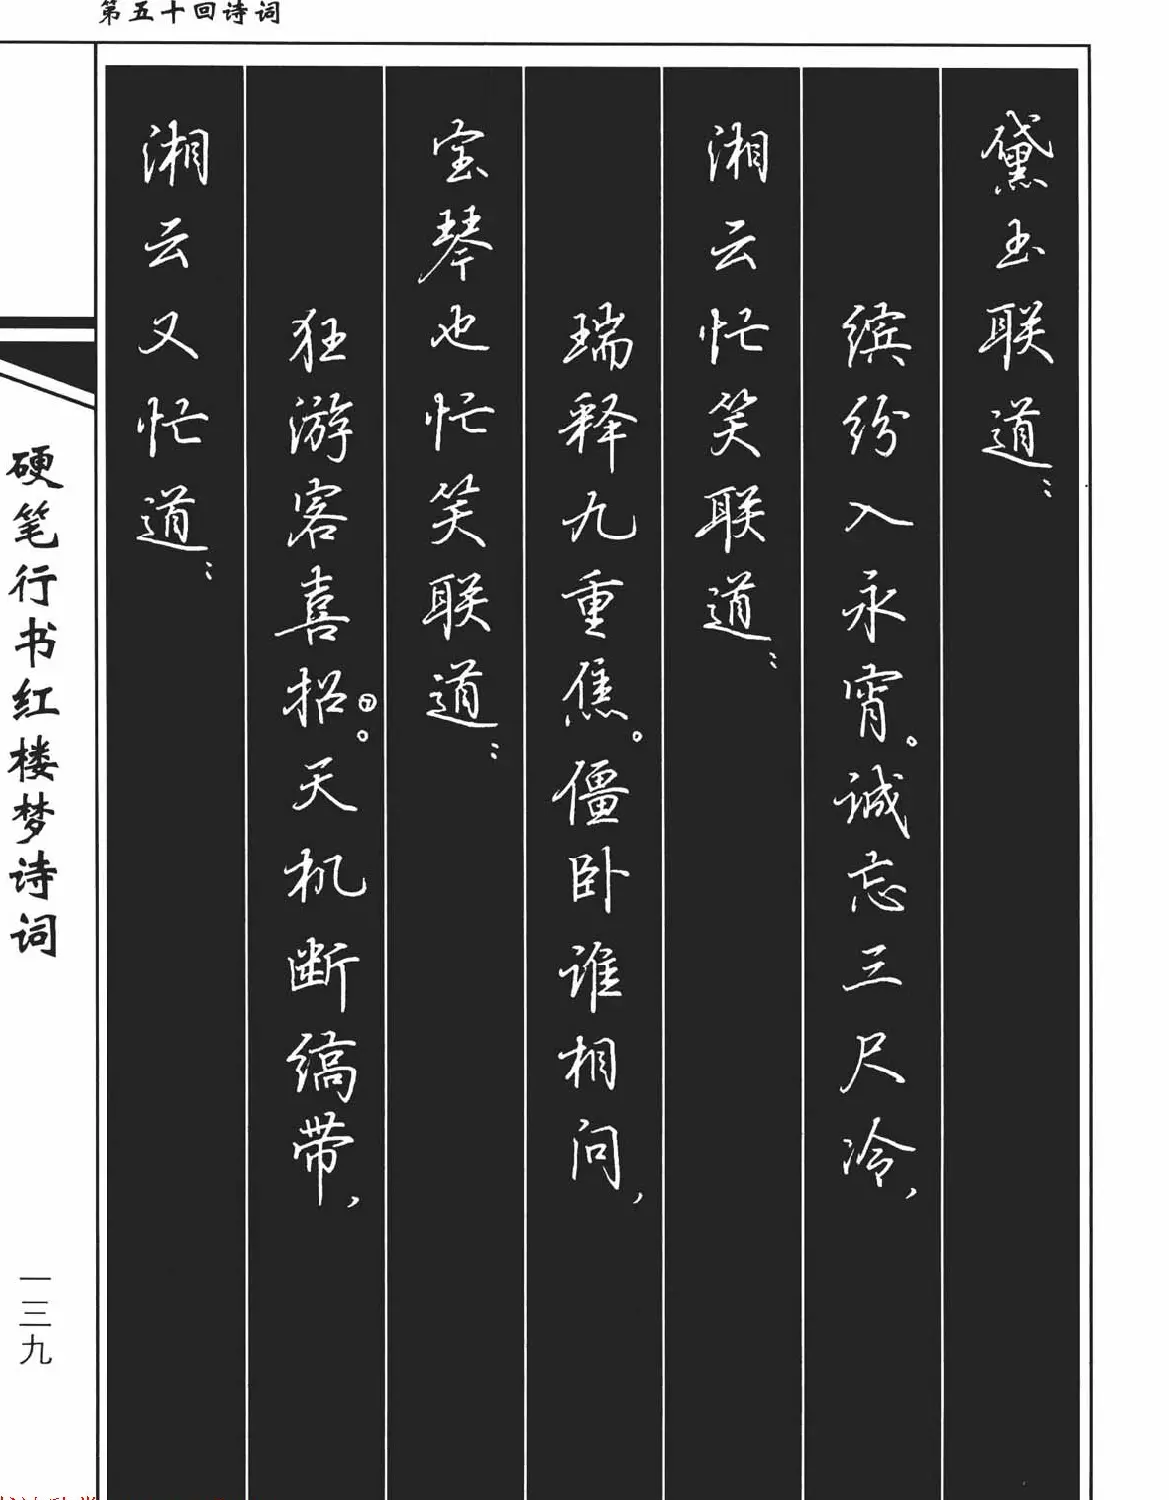 第五十回诗词
黛玉联道：
缤纷入永宵。诚忘三尺冷，
湘云忙笑联道：
瑞释九重焦。僵卧谁相问，
宝琴也忙笑联道：
狂游客喜招⑦。天机断缟带，
湘云又忙道：
硬笔行书红楼梦诗词
一三九